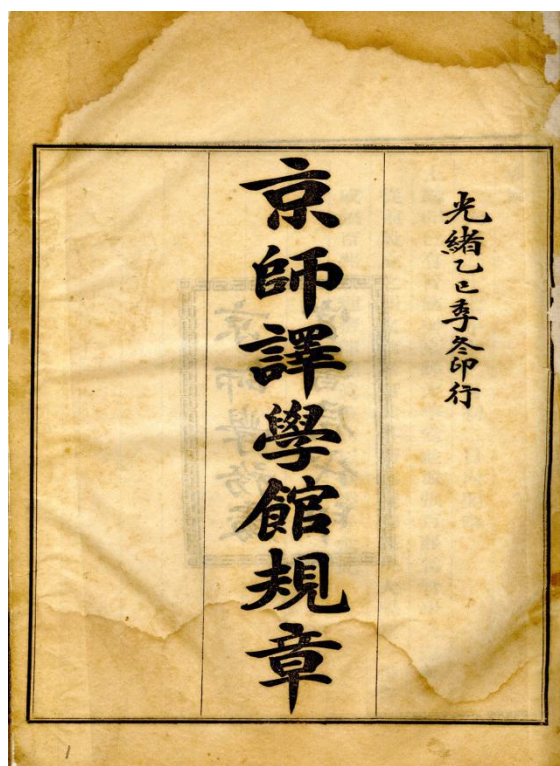 光緒乙巳季冬印行
京師譯學館規章
1